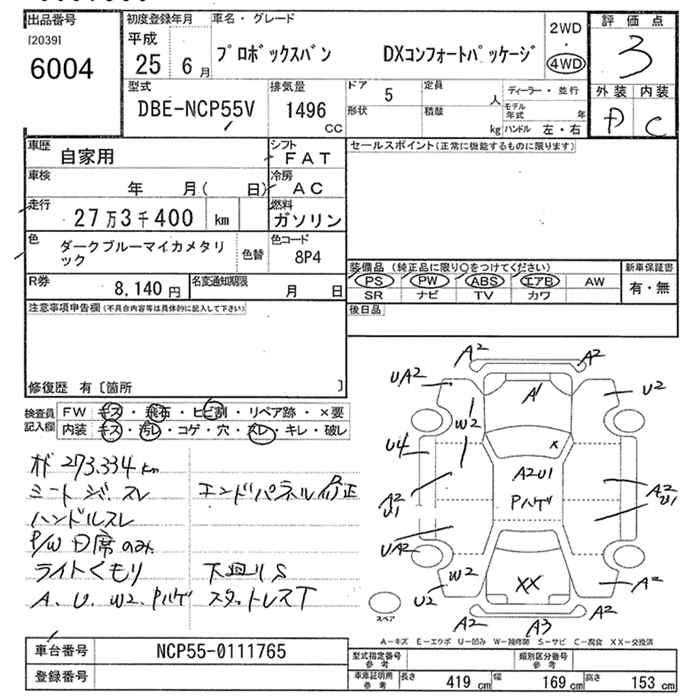 出品番号
[2039]
6004
初度登録年月
平成
25年 6月
車名・グレード
プロボックスバン DXコンフォートパッケージ
2WD
・
4WD
評価点
3
外装 内装
D C
型式
DBE-NCP55V
排気量
1496
CC
ドア
5
形状
定員
人
積載
kg
ディーラー・並行
モデル年式 年
ハンドル 左・右
車歴
自家用
シフト
FAT
車検
年 月( 日)
冷房
AC
走行
27万3千400 km
燃料
ガソリン
色
ダークブルーマイカメタリック
色替
色コード
8P4
R券
8,140円
名変通知期限
月 日
セールスポイント(正常に機能するものに限ります)
装備品 (純正品に限り○をつけてください)
PS PW ABS エアB AW
SR ナビ TV カワ
新車保証書
有・無
後日品
注意事項申告欄(不具合内容等は具体的に記入して下さい)
修復歴 有〔箇所 〕
検査員
記入欄
FW キズ・飛石・ヒビ割・リペア跡・×要
内装 キズ・汚レ・コゲ・穴・スレ・キレ・破レ
273.334km
シート スレ
ハンドルスレ
P/W D席のみ
ライトくもり
A、U、W2、Pハゲ
エンドパネル修正
下廻りS
スタットレスT
A2
A2
UA2
U2
A1
W2
U4
X
A2U1
Pハゲ
A2
U1
A2
U1
UA2
W2
U2
XX
A2
A2
A3
A2
スペア
A-キズ E-エクボ U-凹み W-補修跡 S-サビ C-腐食 XX-交換済
車台番号
NCP55-0111765
登録番号
型式指定番号
参考
類別区分番号
参考
車庫証明用
参考
長さ 419 cm
幅 169 cm
高さ 153 cm